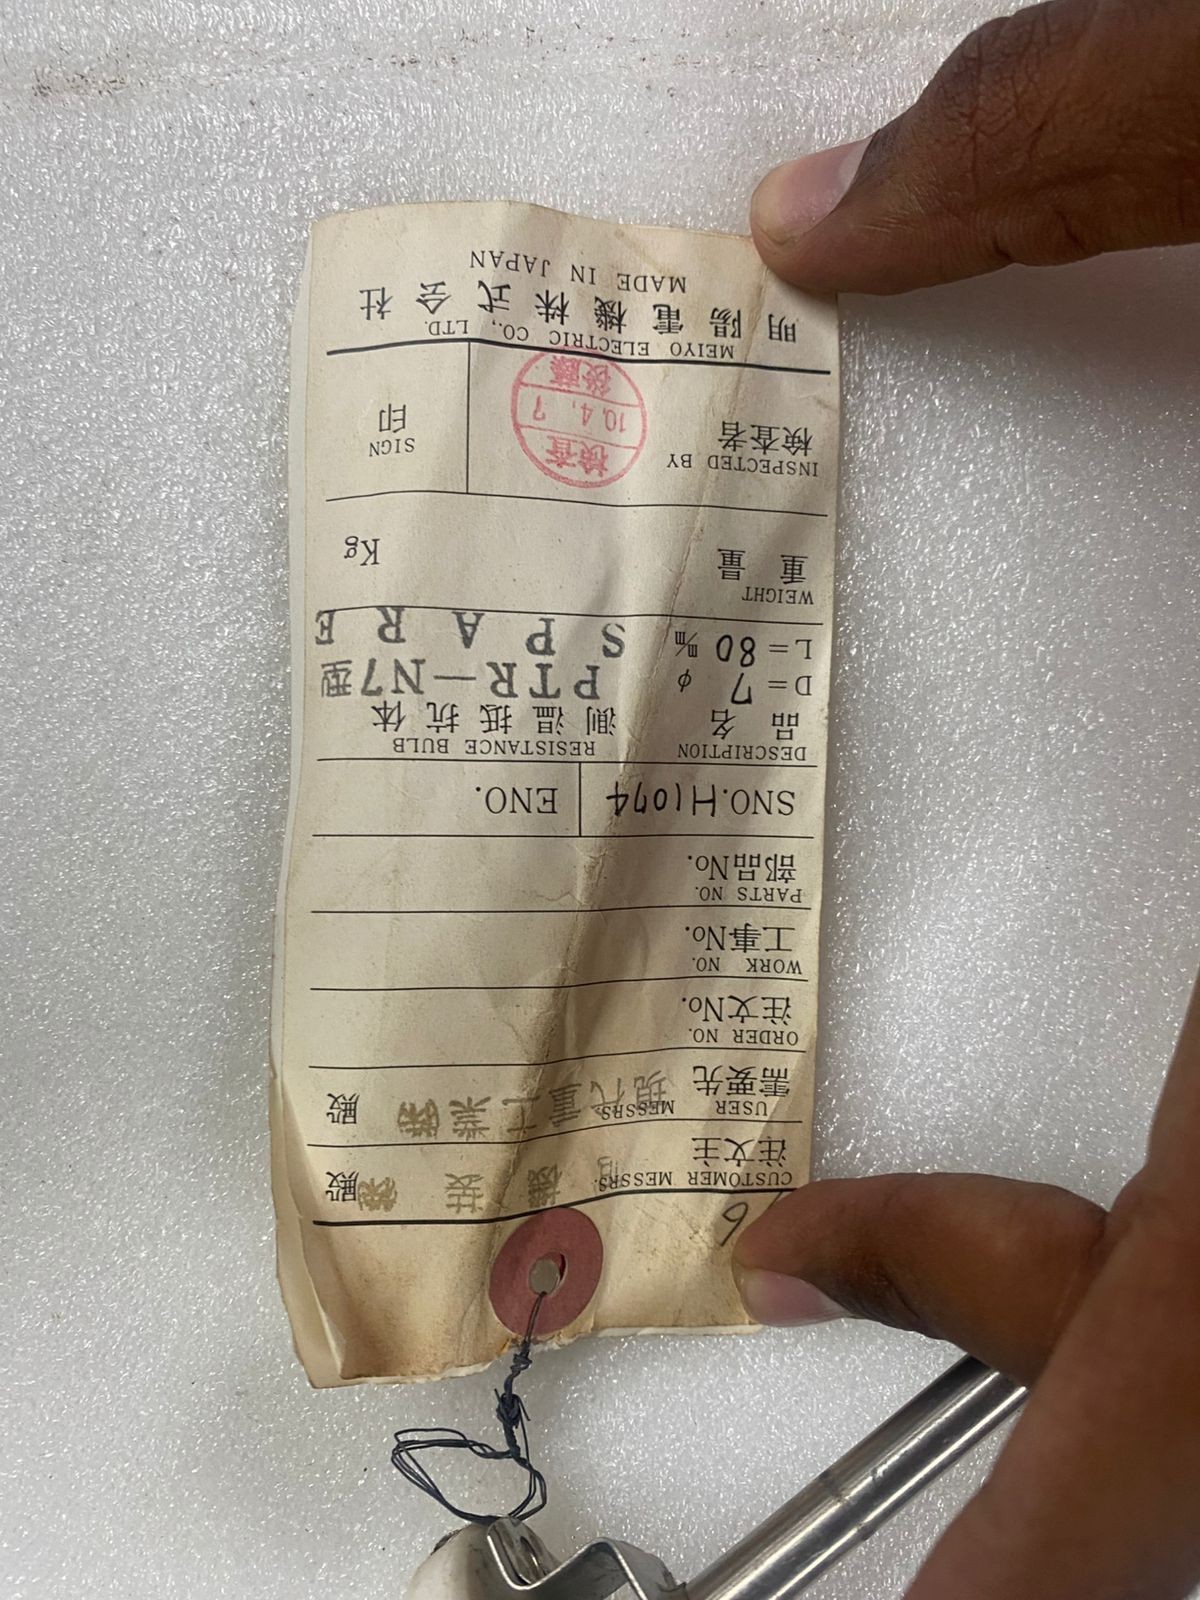 CUSTOMER MESSRS.
注文主 殿
USER MESSRS.
需要先 現代重工業㈱ 殿
ORDER NO.
注文No.
WORK NO.
工事No.
PARTS NO.
部品No.
SNO. H1074 ENO.
DESCRIPTION RESISTANCE BULB
品名 測温抵抗体
D= 7 φ PTR-N7型
L= 80 m/m SPARE
WEIGHT
重量 Kg
INSPECTED BY SIGN
検査者 印
検査
10.4.7
後藤
MEIYO ELECTRIC CO., LTD.
明陽電機株式会社
MADE IN JAPAN